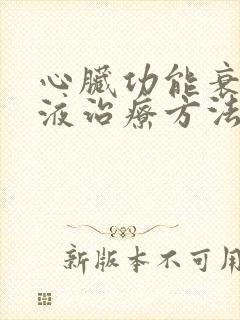 心臟功能衰
液治療方法
新版本不可用